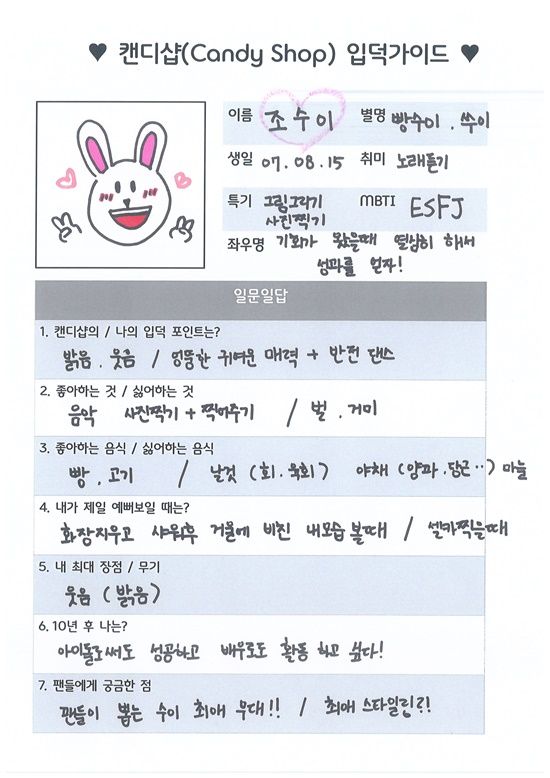 ♥ 캔디샵(Candy Shop) 입덕가이드 ♥
이름 조수이 별명 빵수이, 쑤이
생일 07.08.15 취미 노래듣기
특기 그림그리기 MBTI ESFJ
사진찍기
좌우명 기회가 왔을때 열심히 해서
성과를 얻자!
일문일답
1. 캔디샵의 / 나의 입덕 포인트는?
밝음, 웃음 / 엉뚱한 귀여운 매력 + 반전 댄스
2. 좋아하는 것 / 싫어하는 것
음악 사진찍기 + 찍어주기 / 벌, 거미
3. 좋아하는 음식 / 싫어하는 음식
빵, 고기 / 날것 (회, 육회) 야채 (양파, 당근..) 마늘
4. 내가 제일 예뻐보일 때는?
화장지우고 샤워후 거울에 비친 내모습 볼때 / 셀카찍을때
5. 내 최대 장점 / 무기
웃음 (밝음)
6. 10년 후 나는?
아이돌로써도 성공하고 배우로도 활동 하고 싶다!
7. 팬들에게 궁금한 점
팬들이 뽑는 수이 최애 무대!! / 최애 스타일링?!